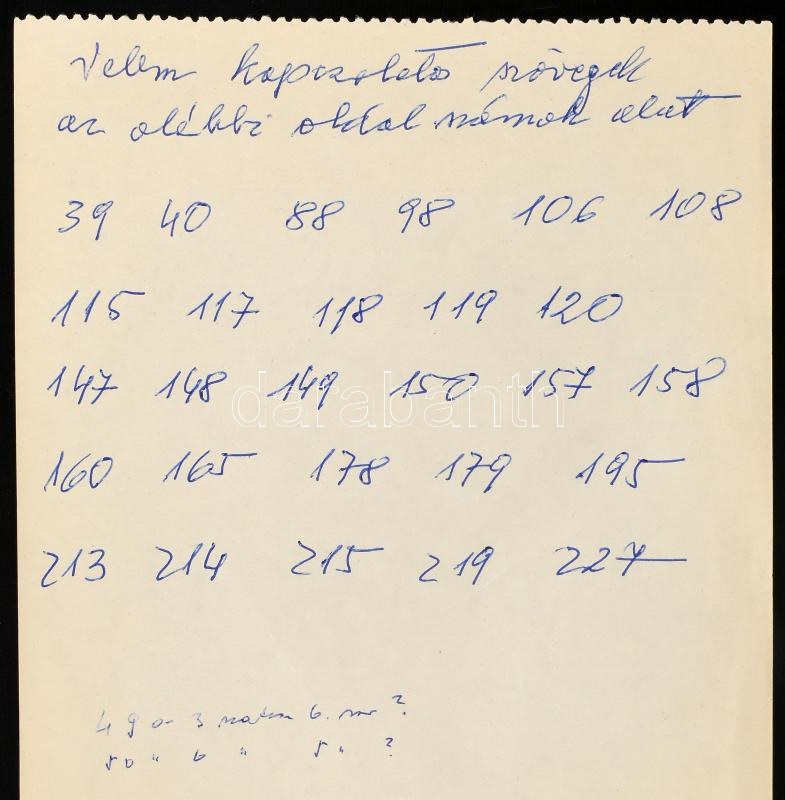 Velem kapcsolatos szövegek
az alábbi oldal számok alatt
39 40 88 98 106 108
115 117 118 119 120
147 148 149 150 157 158
darabanth
160 165 178 179 195
213 214 215 219 227
49 o 3 6. sor ?
50 " 6 " 5 " ?